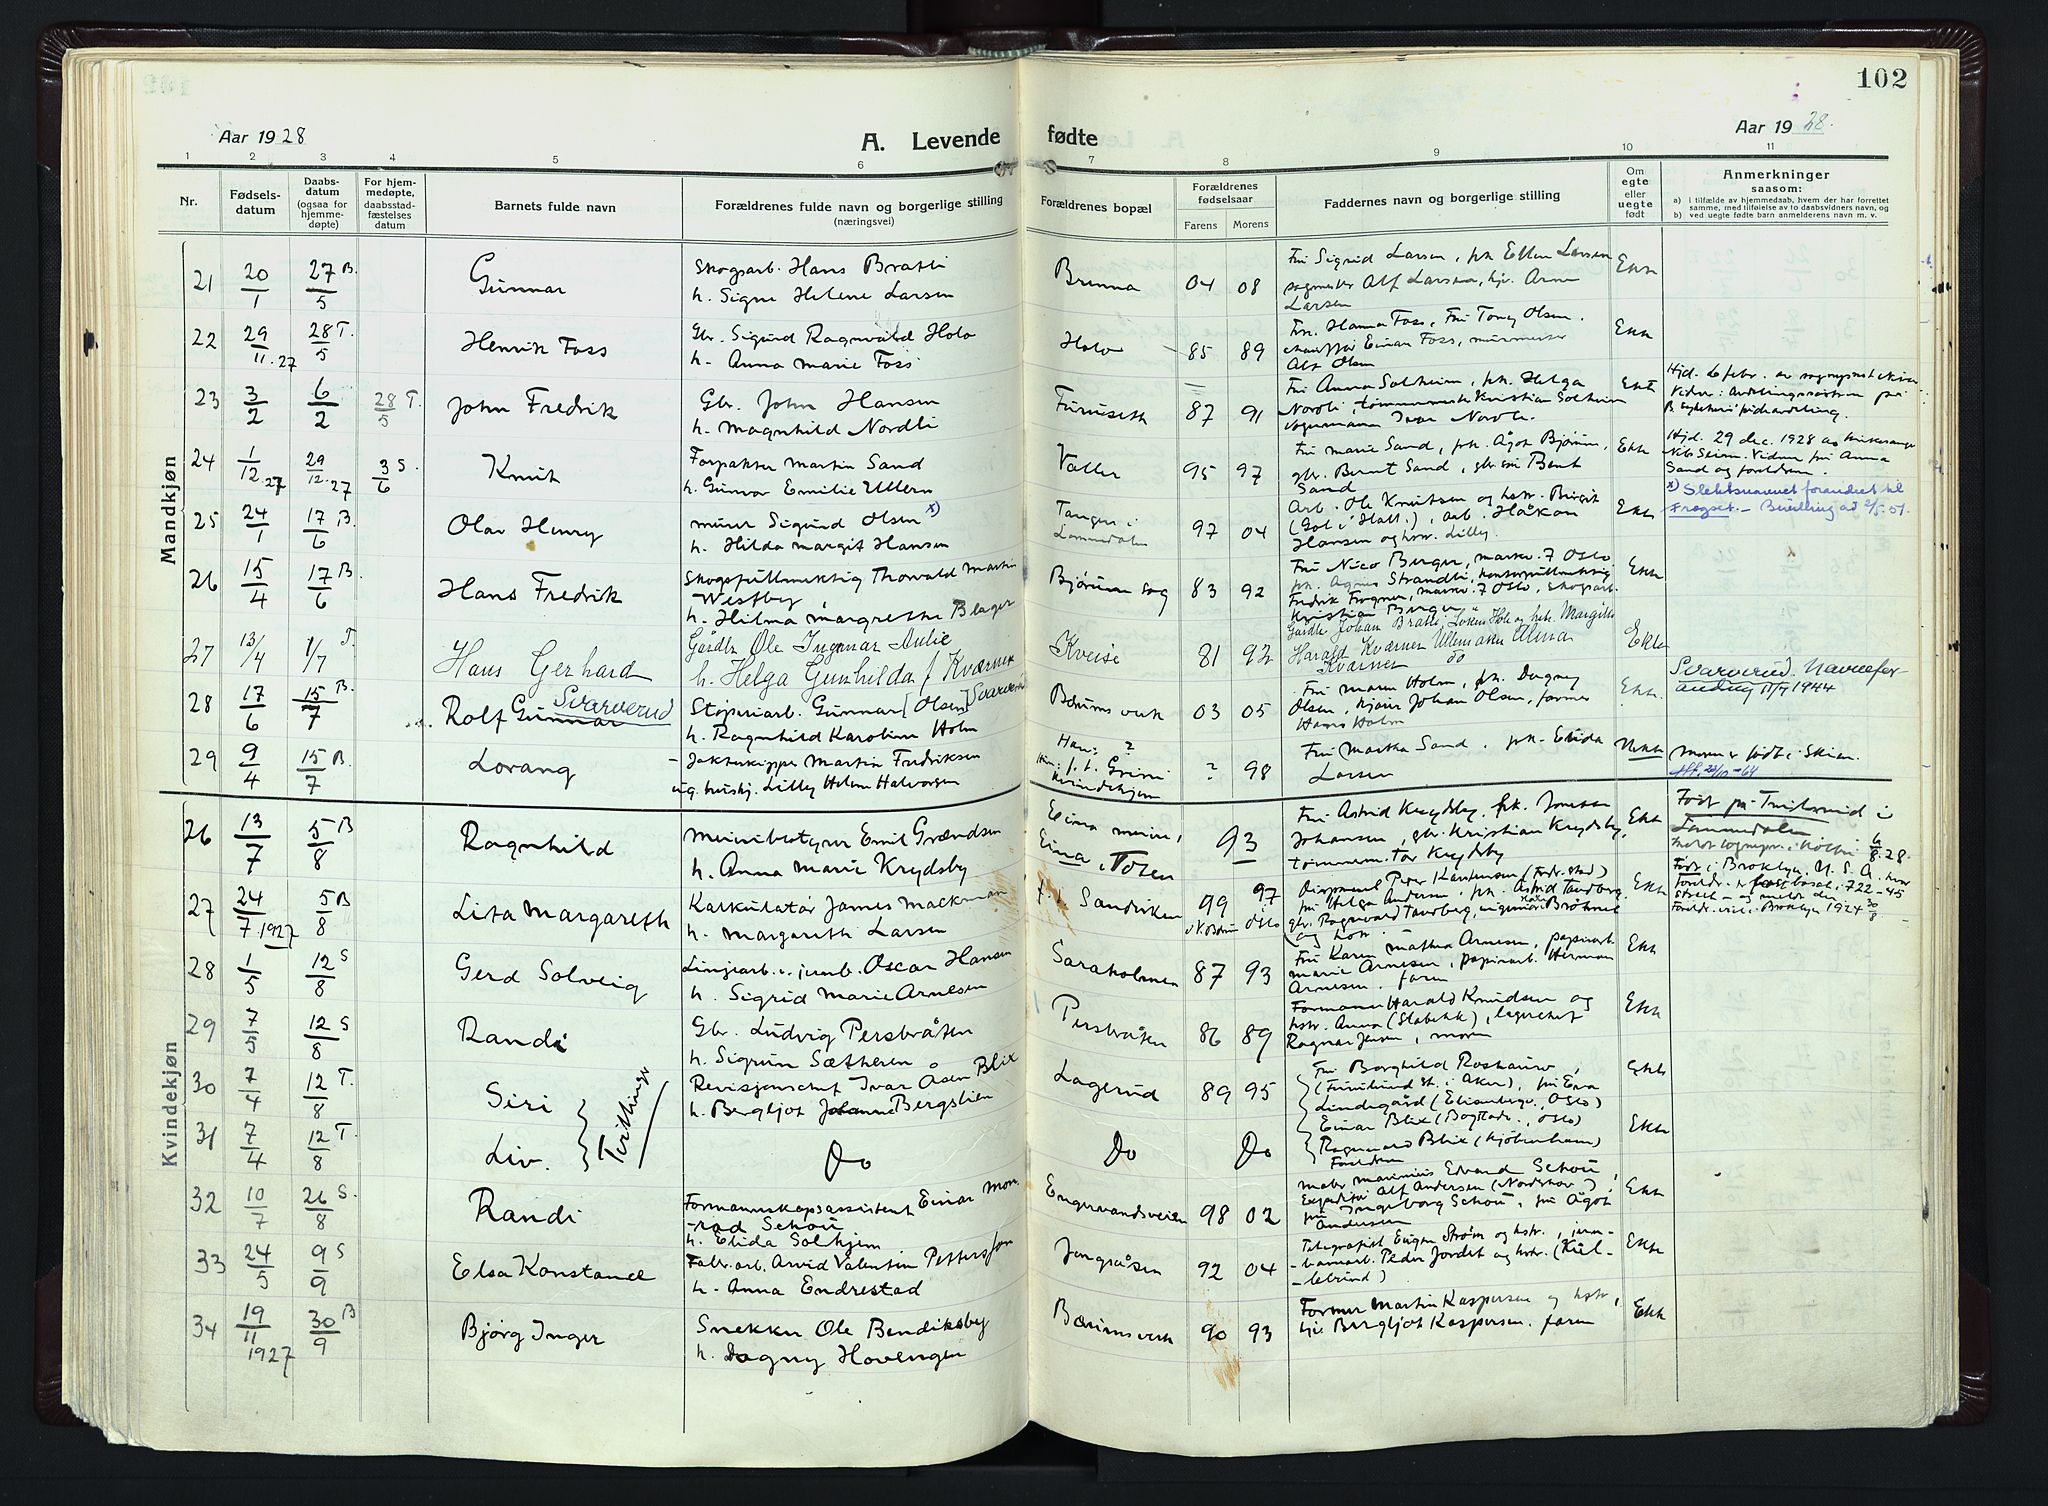 102
Aar 1928
A. Levende
fødte
Aar 1928.
1 2 3 4 5 6 7 8 9 10 11
Nr.
Fødsels-
datum
Daabs-
datum
(ogsaa for
hjemme-
døpte)
For hjem-
medøpte,
daabsstad-
fæstelses
datum
Barnets fulde navn
Forældrenes fulde navn og borgerlige stilling
(næringsvei)
Forældrenes bopæl
Forældrenes
fødselsaar
Farens Morens
Faddernes navn og borgerlige stilling
Om
egte
eller
uegte
født
Anmerkninger
saasom:
a) i tilfælde av hjemmedaab, hvem der har forrettet
samme, med tilføielse av to daabsvidners navn, og
b) ved uegte fødte barn anmelderens navn m. v.
Mandkjøn
21 20/1 27/5 B. Gunnar
Skogsarb. Hans Bratli
h. Signe Helene Larsen
Brenna 04 08
Fru Sigrid Larsen, frk. Ellen Larsen
sagmester Alf Larsen, hjv. Arne
Larsen
Ekte
22 29/11.27 28/5 T. Henrik Foss
Gbr. Sigurd Ragnvald Holo
h. Anna Marie Foss
Holo 85 89
Frk. Hanna Foss, Fru Olsen.
chauffør Einar Foss, murmester
Alf Olsen
Ekte
23 3/2 6/2 28/5 T. John Fredrik
Gbr. John Hansen
h. Magnhild Nordli
Furuseth 87 91
Fru Anna Solheim, frk. Helga
Nordli, Kristian Solheim
Ivar Nordli
Ekte
Hjd. 6 febr. av
24 1/12.27 29/12.27 3/6 S. Knut
Forpakter Martin Sand
h. Gunvor Emilie Ullern
Valler 95 97
Fru Marie Sand, frk. Ågot Bjørum,
gbr. Bernt Sand, Bent
Sand
Ekte
Hjd. 29 dec. 1928 av
Nils Seim. Vidner fru Anna
Sand og foreldrene.
25 24/1 17/6 B. Olav Henry
murer Sigurd Olsen x)
h. Hilda Margit Hansen
Tangen i
Lommedalen 97 04
Arb. Ole Knutsen og hstr. Birgit
(Gol i Hall.), arb. Håkon
Hansen og hstr. Lilly.
Ekte
x) Slektsnavnet forandret til
26 15/4 17/6 B. Hans Fredrik
Skogsfullmektig Thorvald Martin
Westby
h. Hilma Margrethe Blager
Bjørum sag 83 92
Fru Nico Berger, 7 Oslo
frk. Agnes Strandli,
Fredrik 7 Oslo, skogsarb.
Kristian Berger
Ekte
27 13/4 1/7 T. Hans Gerhard
Gårdbr. Ole Ingmar Aulie
h. Helga Gunhilda f Kværner
Kveise 81 92
Gårdbr. Johan Bratli, og hstr. Margithe
Harald Kværner Ullensaker Alma
Kværner do
Ekte
28 17/6 15/7 B. Rolf Gunnar Svarverud
Støperiarb. Gunnar [Olsen] Svarverud
h. Ragnhild Karoline Holm
Bærums verk 03 05
Fru Maren Holm, frk. Dagny
Olsen, Johan Olsen, former
Hans Holm
Ekte.
Svarverud. Navnefor-
andring 11/7 1944
29 9/4 15/7 B. Lorang
Martin Fredriksen
ug. Lilly Helene Halvorsen
Han: ?
Grini
Kvindehjem
? 98
Fru Martha Sand, frk. Elida
Larsen
Uekte
moren født i Skien.
Kvindekjøn
26 13/7 5/8 B Ragnhild
Emil Grændsen
h. Anna Marie Krydsby
Eina,
Eina, Toten 93
Fru Astrid Krydsby, frk.
Johansen, gbr. Kristian Krydsby,
tømmerm. Tor Krydsby
Ekte
Født på i
Lommedalen
6/8.28.
27 24/7 1927 5/8 B Lita Margareth
Kalkulatør James Mackman
h. Margareth Larsen
Sandviken 99 97
V. Bærum Oslo
Peder (Fredr.stad)
fru Helga Andersen, frk. Astrid Tandberg,
gbr. Ragnvald Tandberg, ingeniør
og hstr.
Ekte
Født i Broklyn, U.S.A. hvor
Foreldr. er fast bosat, 722-45
Street
Foreldr. viet i Broklyn 1924 30/8
28 1/5 12/8 S Gerd Solveig
Linjearb. v. jernb. Oscar Hansen
h. Sigrid Marie Arnesen
Saraholmen 87 93
Fru Karen Mathea Arnesen, papirarb.
Marie Arnesen, papirarb. Herman
Arnesen. faren
Ekte
29 7/5 12/8 S Randi
Gbr. Ludvig Persbråten
h. Sigrun Sætheren
Persbråten 86 89
Formann Harald Knudsen og
hstr. Anna (Stabekk), lagerchef
Ragnar Jensen, moren
Ekte
30 7/4 12/8 T. Siri
Tvillinger
Revisjonschef Ivar Åsen Blix
h. Bergljot Johanne Bergslien
Lagerud 89 95
Fru Borghild
(Furulund st. i Aker), fru Eva
Lindegård (Elisenbergv., Oslo)
Ekte
31 7/4 12/8 T. Liv.
Do Do Do
Einar Blix (Bogstadv., Oslo)
Ragnvald Blix (Kjøbenhavn)
Foreldrene
Ekte
32 10/7 26/8 S. Randi
Formannskapsassistent Einar Mon-
-rad Schou
h. Elida Solhjem
Engervandsveien 98 02
Edvard Schou,
Expeditør Alf Andersen
fru Ingeborg Schou, fru Ågot
Andersen
Ekte
33 24/5 9/9 S Elsa Konstance
Fabr.arb. Arvid Valentin Petterson
h. Anna Endrestad
Jongsåsen 92 04
Telegrafist Eugen Strøm og hstr., jern-
-banearb. Peder Jordet og hstr. (Kjel-
Ekte
34 19/11 1927 30/9 B Bjørg Inger
Snekker Ole Bendiksby
h. Dagny Hovengen
Bærums verk 90 93
Former Martin Kaspersen og hstr.,
Bergljot Kaspersen. faren
Ekte